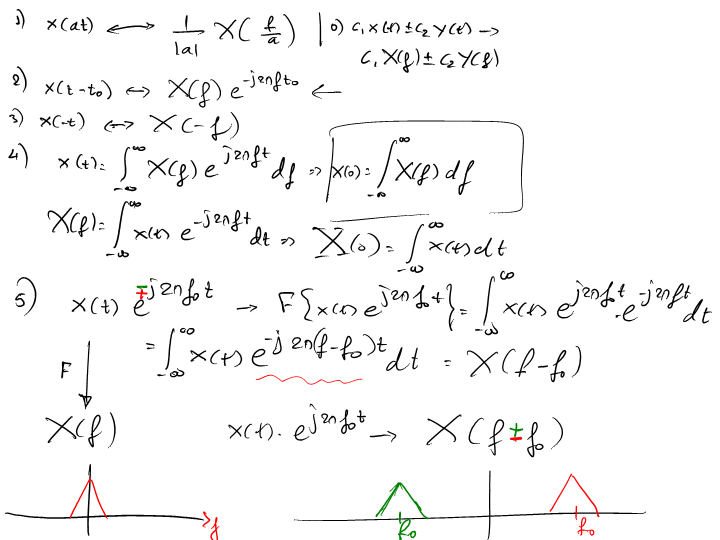 1) x(at) ⟷ 1/|a| X(f/a) | 0) c₁x(t) ± c₂y(t) →
c₁X(f) ± c₂Y(f)
2) x(t-t₀) ↔ X(f) e^{-j2πft₀} ←
3) x(-t) ↔ X(-f)
4) x(t) = ∫_{-∞}^{∞} X(f) e^{j2πft} df ⇒ x(0) = ∫_{-∞}^{∞} X(f) df
X(f) = ∫_{-∞}^{∞} x(t) e^{-j2πft} dt ⇒ X(0) = ∫_{-∞}^{∞} x(t) dt
5) x(t) e^{∓j2πf₀t} → F{x(t) e^{j2πf₀t}} = ∫_{-∞}^{∞} x(t) e^{j2πf₀t} · e^{-j2πft} dt
= ∫_{-∞}^{∞} x(t) e^{-j2π(f-f₀)t} dt = X(f-f₀)
F
X(f) x(t) · e^{j2πf₀t} → X(f ± f₀)
f f₀ f₀